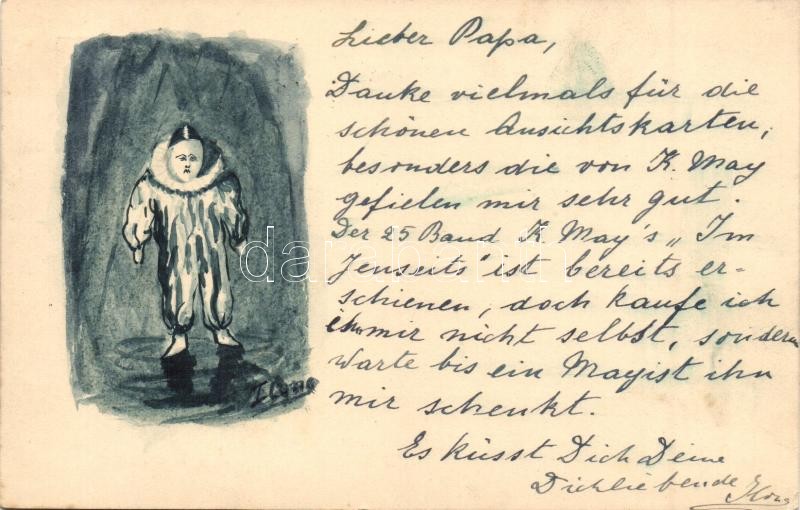 Lieber Papa,
Danke vielmals für die
schönen Ansichtskarten,
besonders die von K. May
gefielen mir sehr gut.
Der 25 Band K. May's „Im
Jenseits" ist bereits er-
schienen, doch kaufe ich
ihn mir nicht selbst, sondern
warte bis ein Mayist ihn
mir schenkt.
Es küsst Dich Deine
Dichliebende Ilona
Ilona